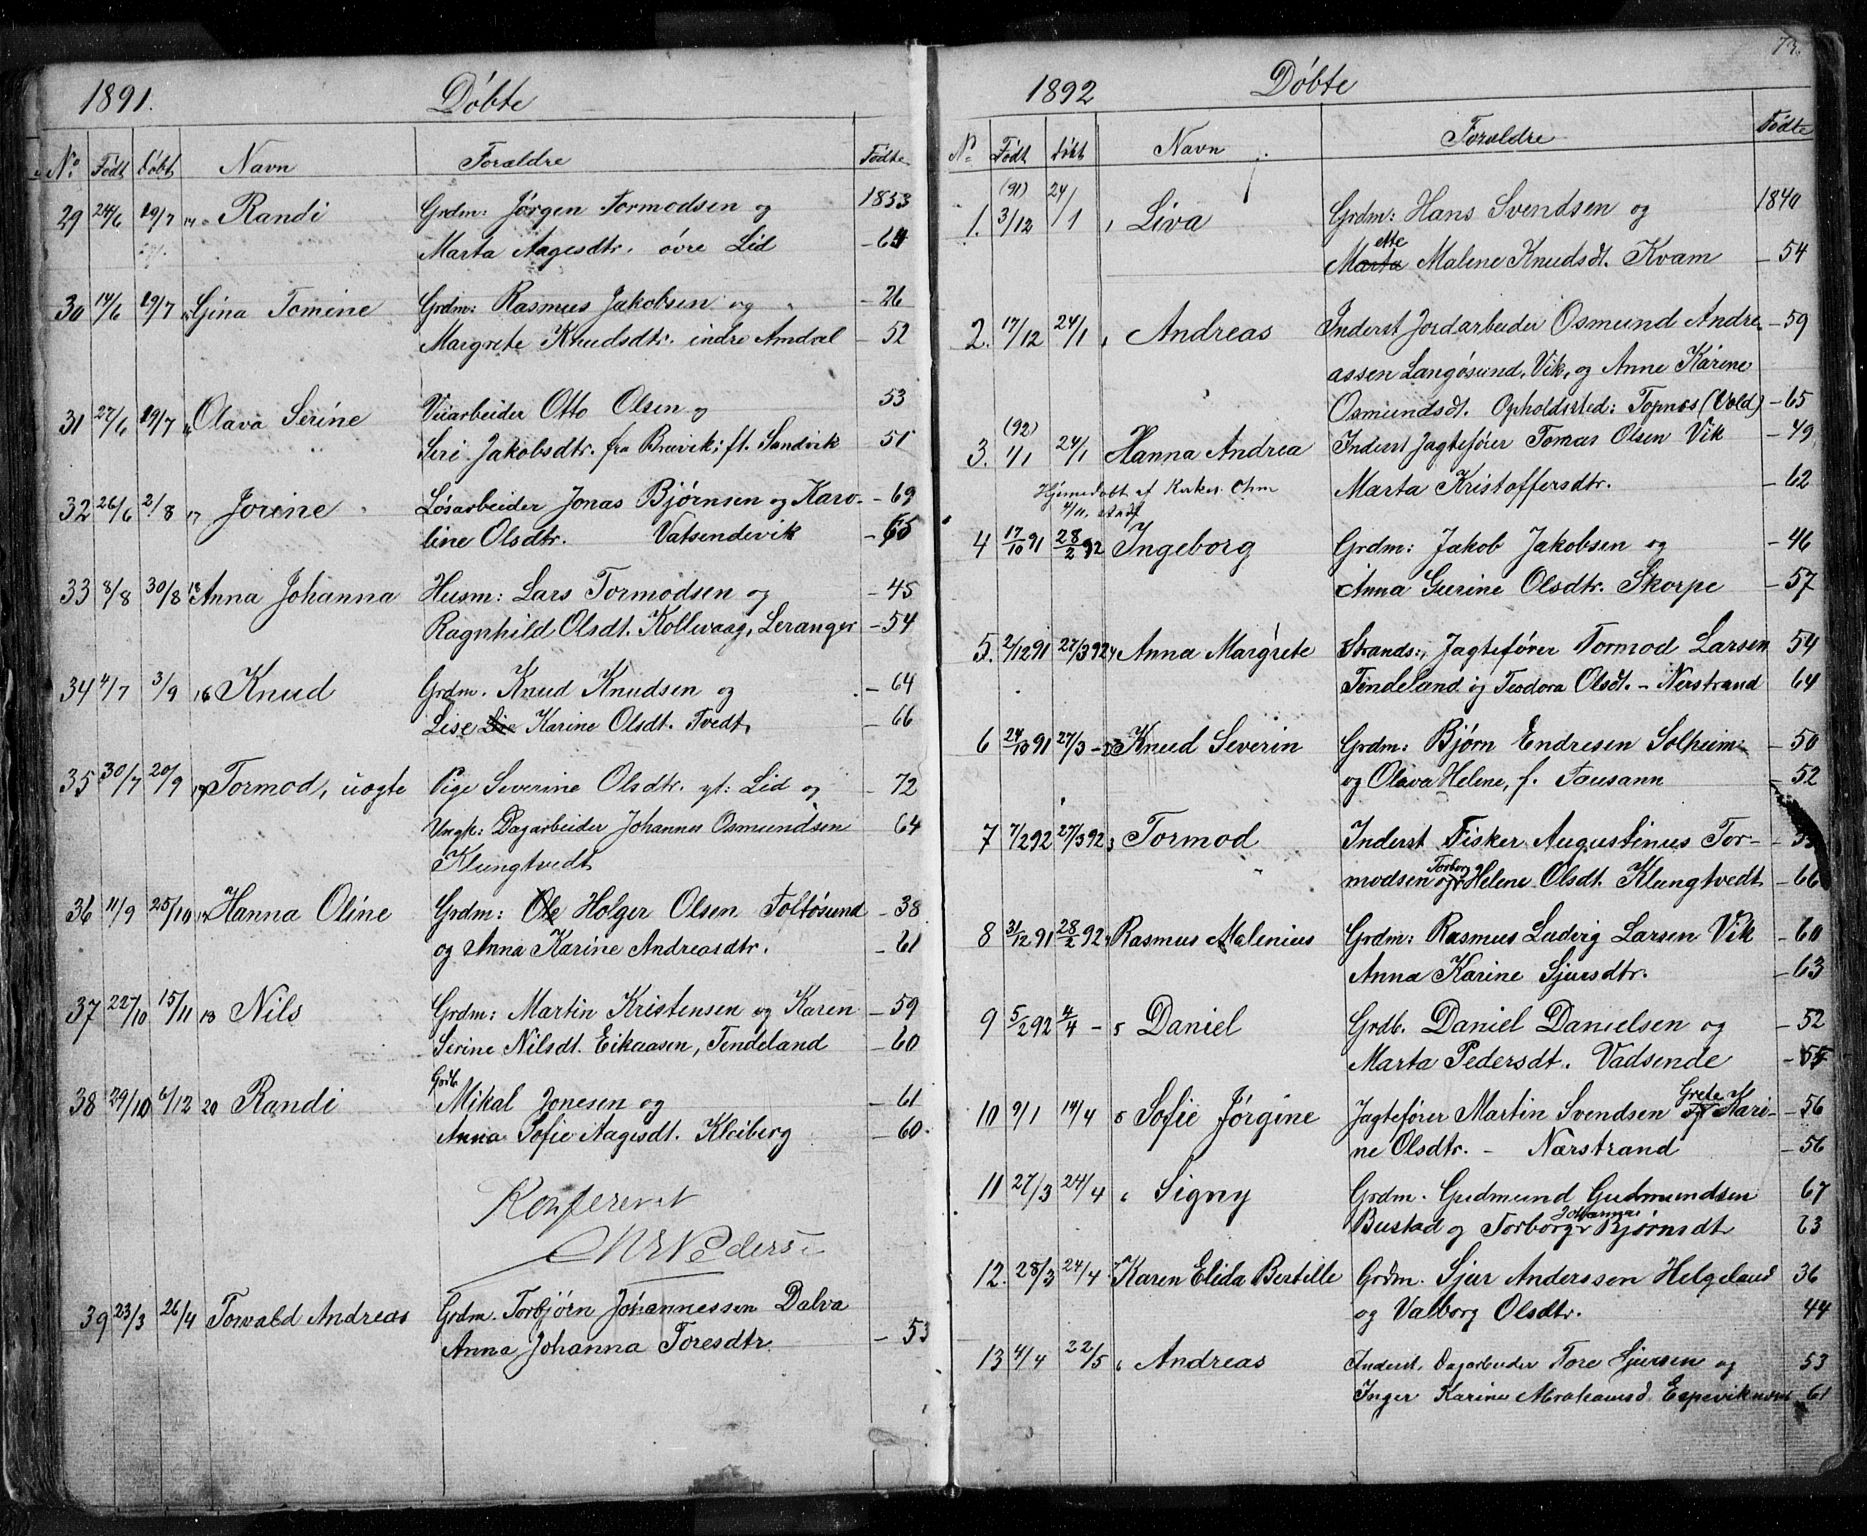 1891.
Döbte
No. Födt Döbt Navn Forældre Födte
29 24/6 19/7 Randi Grdm: Jörgen Tormodsen og 1833
Marta Aagesdtr. övre Lid
30 14/6 19/7 Gina Tomine Grdm: Rasmus Jakobsen og - 26
Margrete Knudsdtr. indre Amdal - 52
31 27/6 19/7 Olava Serine Veiarbeider Otto Olsen og 53
Siri Jakobsdtr. fra Brævik; ft. Sandvik - 51
32 26/6 2/8 Jorine Lösarbeider Jonas Björnsen og Karo- - 69
line Olsdtr. Vatsendevik
33 8/8 30/8 Anna Johanna Husm: Lars Tormodsen og - 45
Ragnhild Olsdt. Kollevaag, Leranger - 54
34 4/7 3/9 16 Knud Grdm. Knud Knudsen og - 64
Lise Karine Olsdt. Tvedt, - 66
35 30/7 20/9 Tormod, uægte Pige Severine Olsdtr. yt: Lid og - 72
Ungk: Dagarbeider Johannes Osmundsen 64
Klungtvedt
36 11/9 25/10 Hanna Oline Grdm: Ole Holger Olsen Toltösund - 38
og Anna Karine Andreasdtr. - 61
37 22/10 15/11 13 Nils Grdm: Martin Kristensen og Karen - 59
Serine Nilsdt. Eikaasen, Tendeland - 60
38 29/10 6/12 20 Randi Grdb. Mikal Jonesen og - 61
Anna Sofie Aagesdt. Kleiberg - 60.
Konfereret
39 23/3 26/4 Torvald Andreas Grdm. Torbjörn Johannessen Dalva
Anna Johanna Toresdtr. - 53
73.
1892
Döbte
No Födt Döbt Navn Forældre Födte
1. (91) 3/12 24/1 Liva Grdm: Hans Svendsen og 1840
Marta ette Malene Knudsdt. Kvam - 54
2. 17/12 24/1 Andreas Inderst Jordarbeider Osmund Andre - 59
assen Langösund, Vik, og Anne Karine
Osmundsdt. Opholdssted: Topnes (Vold) - 65
3. (92) 1/1 24/1 Hanna Andrea Inderst Jagtefører Tomas Olsen Vik - 49
Hjemedöbt af Kirkes.
Marta Kristoffersdtr. - 62
4 17/10 91 28/2 92 Ingeborg Grdm: Jakob Jakobsen og - 46
Anna Gurine Olsdtr. Skorpe - 57
5. 2/12 91 27/3 92 Anna Margrete Strands:, Jagtefører Tormod Larsen 54
Tendeland og Teodora Olsdt. - Nerstrand 64
6 24/10 91 27/3 - Knud Severin Grdm: Björn Endresen Solheim: - 50
og Olava Helene, f. Tausann - 52
7 7/2 92 27/3 92 3 Tormod Inderst Fisker Augustinus Tor-
modsen og Torborg Helene Olsdt. Klungtvedt - 66
8 31/12 91 28/2 92 Rasmus Malenius Grdm: Rasmus Ludvig Larsen Vik - 60
Anna Karine Sjursdtr. - 63
9 5/2 92 4/4 - 5 Daniel Grdb. Daniel Danielsen og - 52
Marta Pedersdt. Vadsende
10 9/1 14/4 5 Sofie Jörgine Jagtefører Martin Svendsen og Grete Kari- - 56
ne Olsdtr. - Nærstrand - 56
11 27/3 24/4 6 Signy Grdm. Gudmund Gudmundsen 67
Bustad og Torborg Johanna Björnsdt 63
12. 28/3 24/4 7 Karen Elida Bertille Grdm. Sjur Anderssen Helgeland 36
og Valborg Olsdtr. 44
13 4/4 22/5 6 Andreas Inderst, Dagarbeider Tore Sjursen og 53
Inger Karine Abrahamsd. Espeviknæs 61